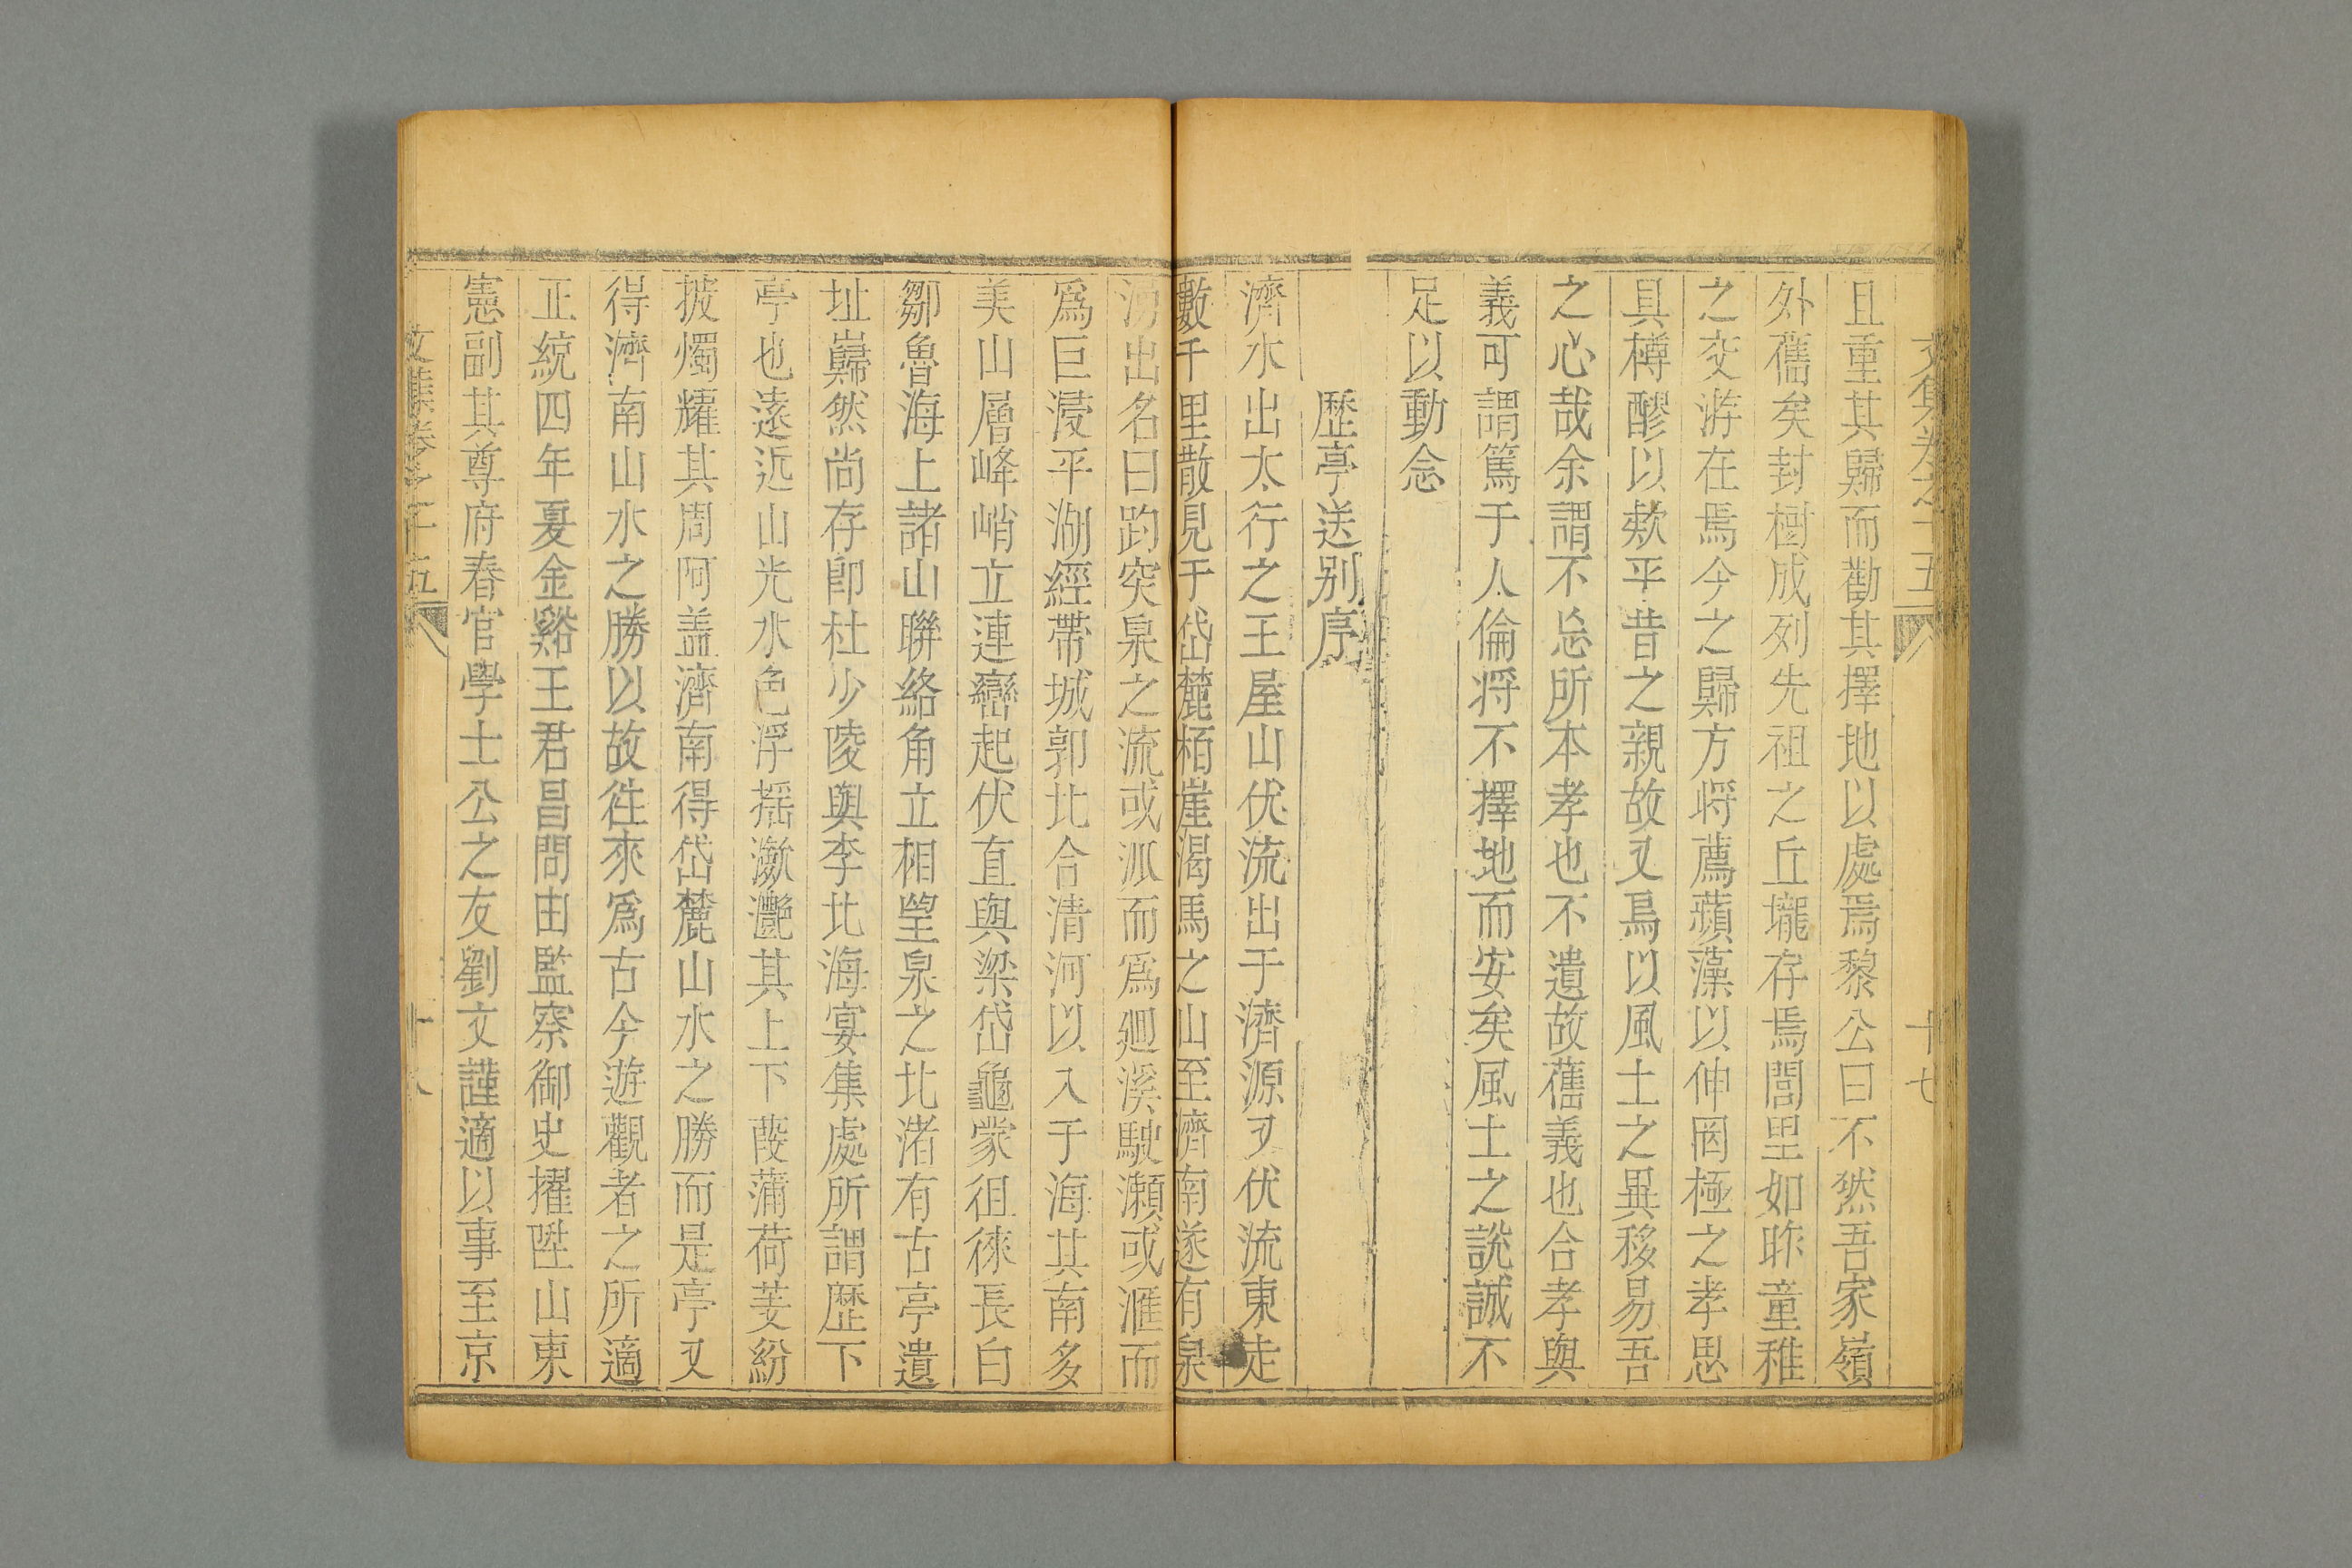 文集卷之十五
十七
且重其歸而勸其擇地以處焉黎公曰不然吾家嶺
外舊矣封樹成列先祖之丘壠存焉閭里如昨童稚
之交游在焉今之歸方將薦蘋藻以伸罔極之孝思
具樽醪以欵平昔之親故又烏以風土之異移易吾
之心哉余謂不忘所本孝也不遺故舊義也合孝與
義可謂篤于人倫將不擇地而安矣風土之說誠不
足以動念
歷亭送别序
濟水出太行之王屋山伏流出于濟源又伏流東走
數千里散見于岱麓栢崖渴馬之山至濟南遂有泉
湧出名曰趵突泉之流或泒而爲廻溪駛瀨或滙而
爲巨浸平湖經帶城郭北合清河以入于海其南多
美山層峰峭立連巒起伏直與梁岱龜蒙徂徠長白
鄒魯海上諸山聯絡角立相望泉之北渚有古亭遺
址巋然尚存卽杜少陵與李北海宴集處所謂歷下
亭也遠近山光水色浮揺潋灧其上下葭蒲荷芰紛
披燭耀其周阿盖濟南得岱麓山水之勝而是亭又
得濟南山水之勝以故徃來爲古今遊觀者之所適
正統四年夏金谿王君昌問由監察御史擢陞山東
憲副其尊府春官學士公之友劉文謹適以事至京
文集卷之十五
十八